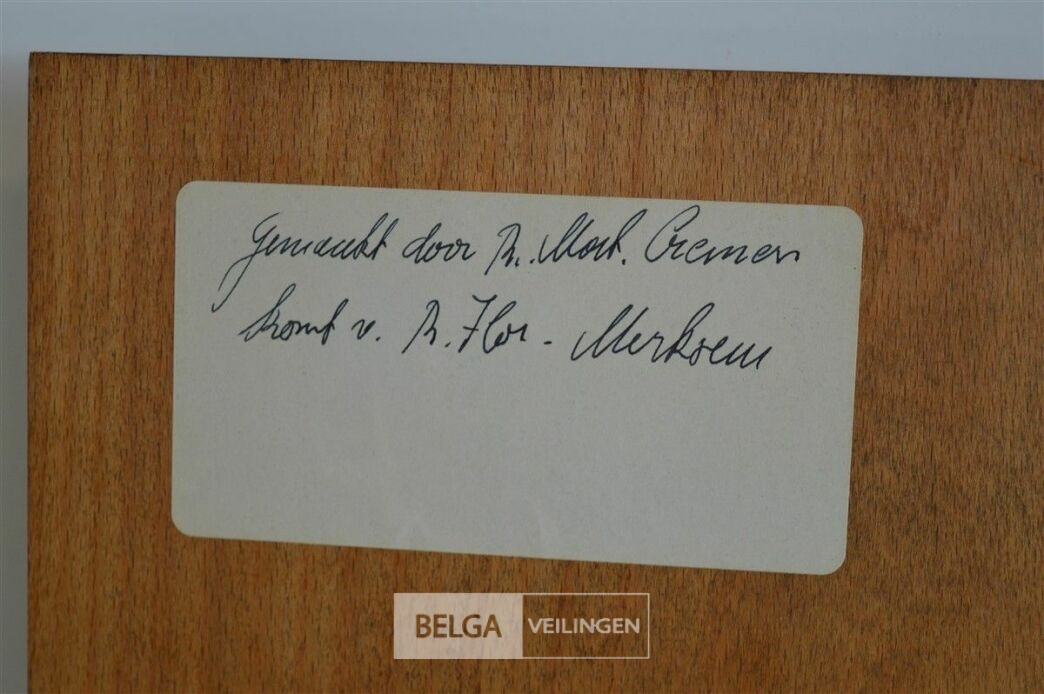 Gemaakt door R. Mort. Cremers
komt v. R. Flor - Merksem
BELGA VEILINGEN